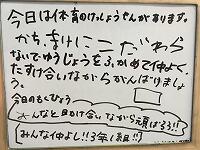 今日は体育のけっしょうせんがあります。
かち、まけにこだわら
ないでゆうじょうをふかめて仲よく、
たすけ合いながらがんばりましょ
う。
今日のもくひょう
みんなと助け合いながら頑ばろう!!
みんな仲よし!!3年1組!!!